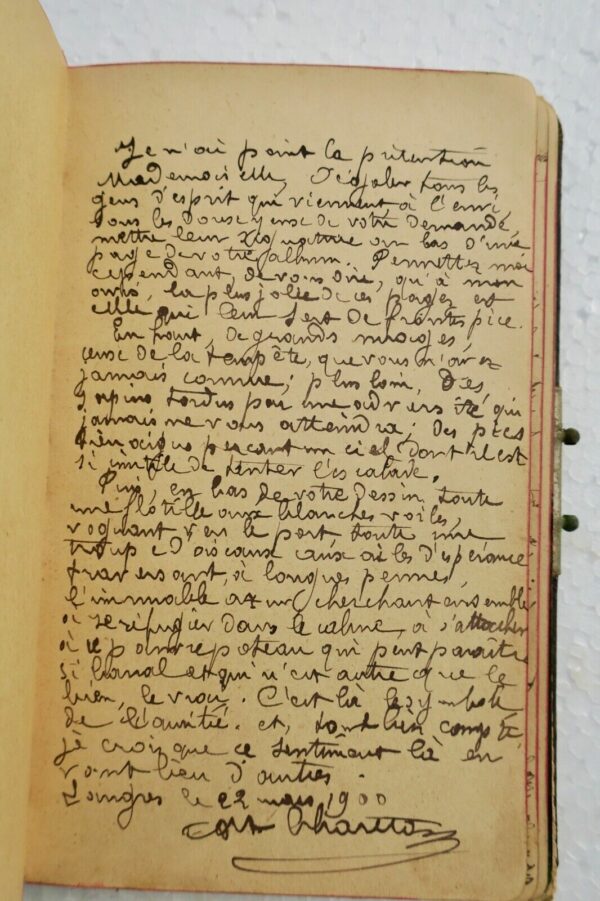 Je n'ai point la prétention
Mademoiselle, D'égaler tous les
gens d'esprit qui viennent à l'envi
sous les doux yeux de votre demande,
mettre leur signature au bas d'une
page de votre album. Permettez moi
cependant, de vous dire, qu'à mon
avis, la plus jolie de ces pages est
celle qui leur sert de frontispice.
En haut, de grands nuages,
ceux de la tempête, que vous n'avez
jamais connue; plus loin, Des
sapins tordus par une adversité qui
jamais ne vous atteindra; Des pics
perçant un ciel dont il est
si inutile de tenter l'escalade.
Puis, en bas de votre dessin toute
une flotille aux blanches voiles,
voguant vers le port, toute une
troupe d'oiseaux aux ailes d'espérance
traversant, à longues pennes,
l'immuable azur cherchant ensemble
à se réfugier dans le calme, à s'attacher
à ce pauvre poteau qui peut paraître
si banal et qui n'est autre que le
bien, le vrai. C'est là le symbole
de l'amitié. et, tout bien compté,
je crois que ce sentiment là en
vaut bien d'autres.
Langres le 22 mars 1900